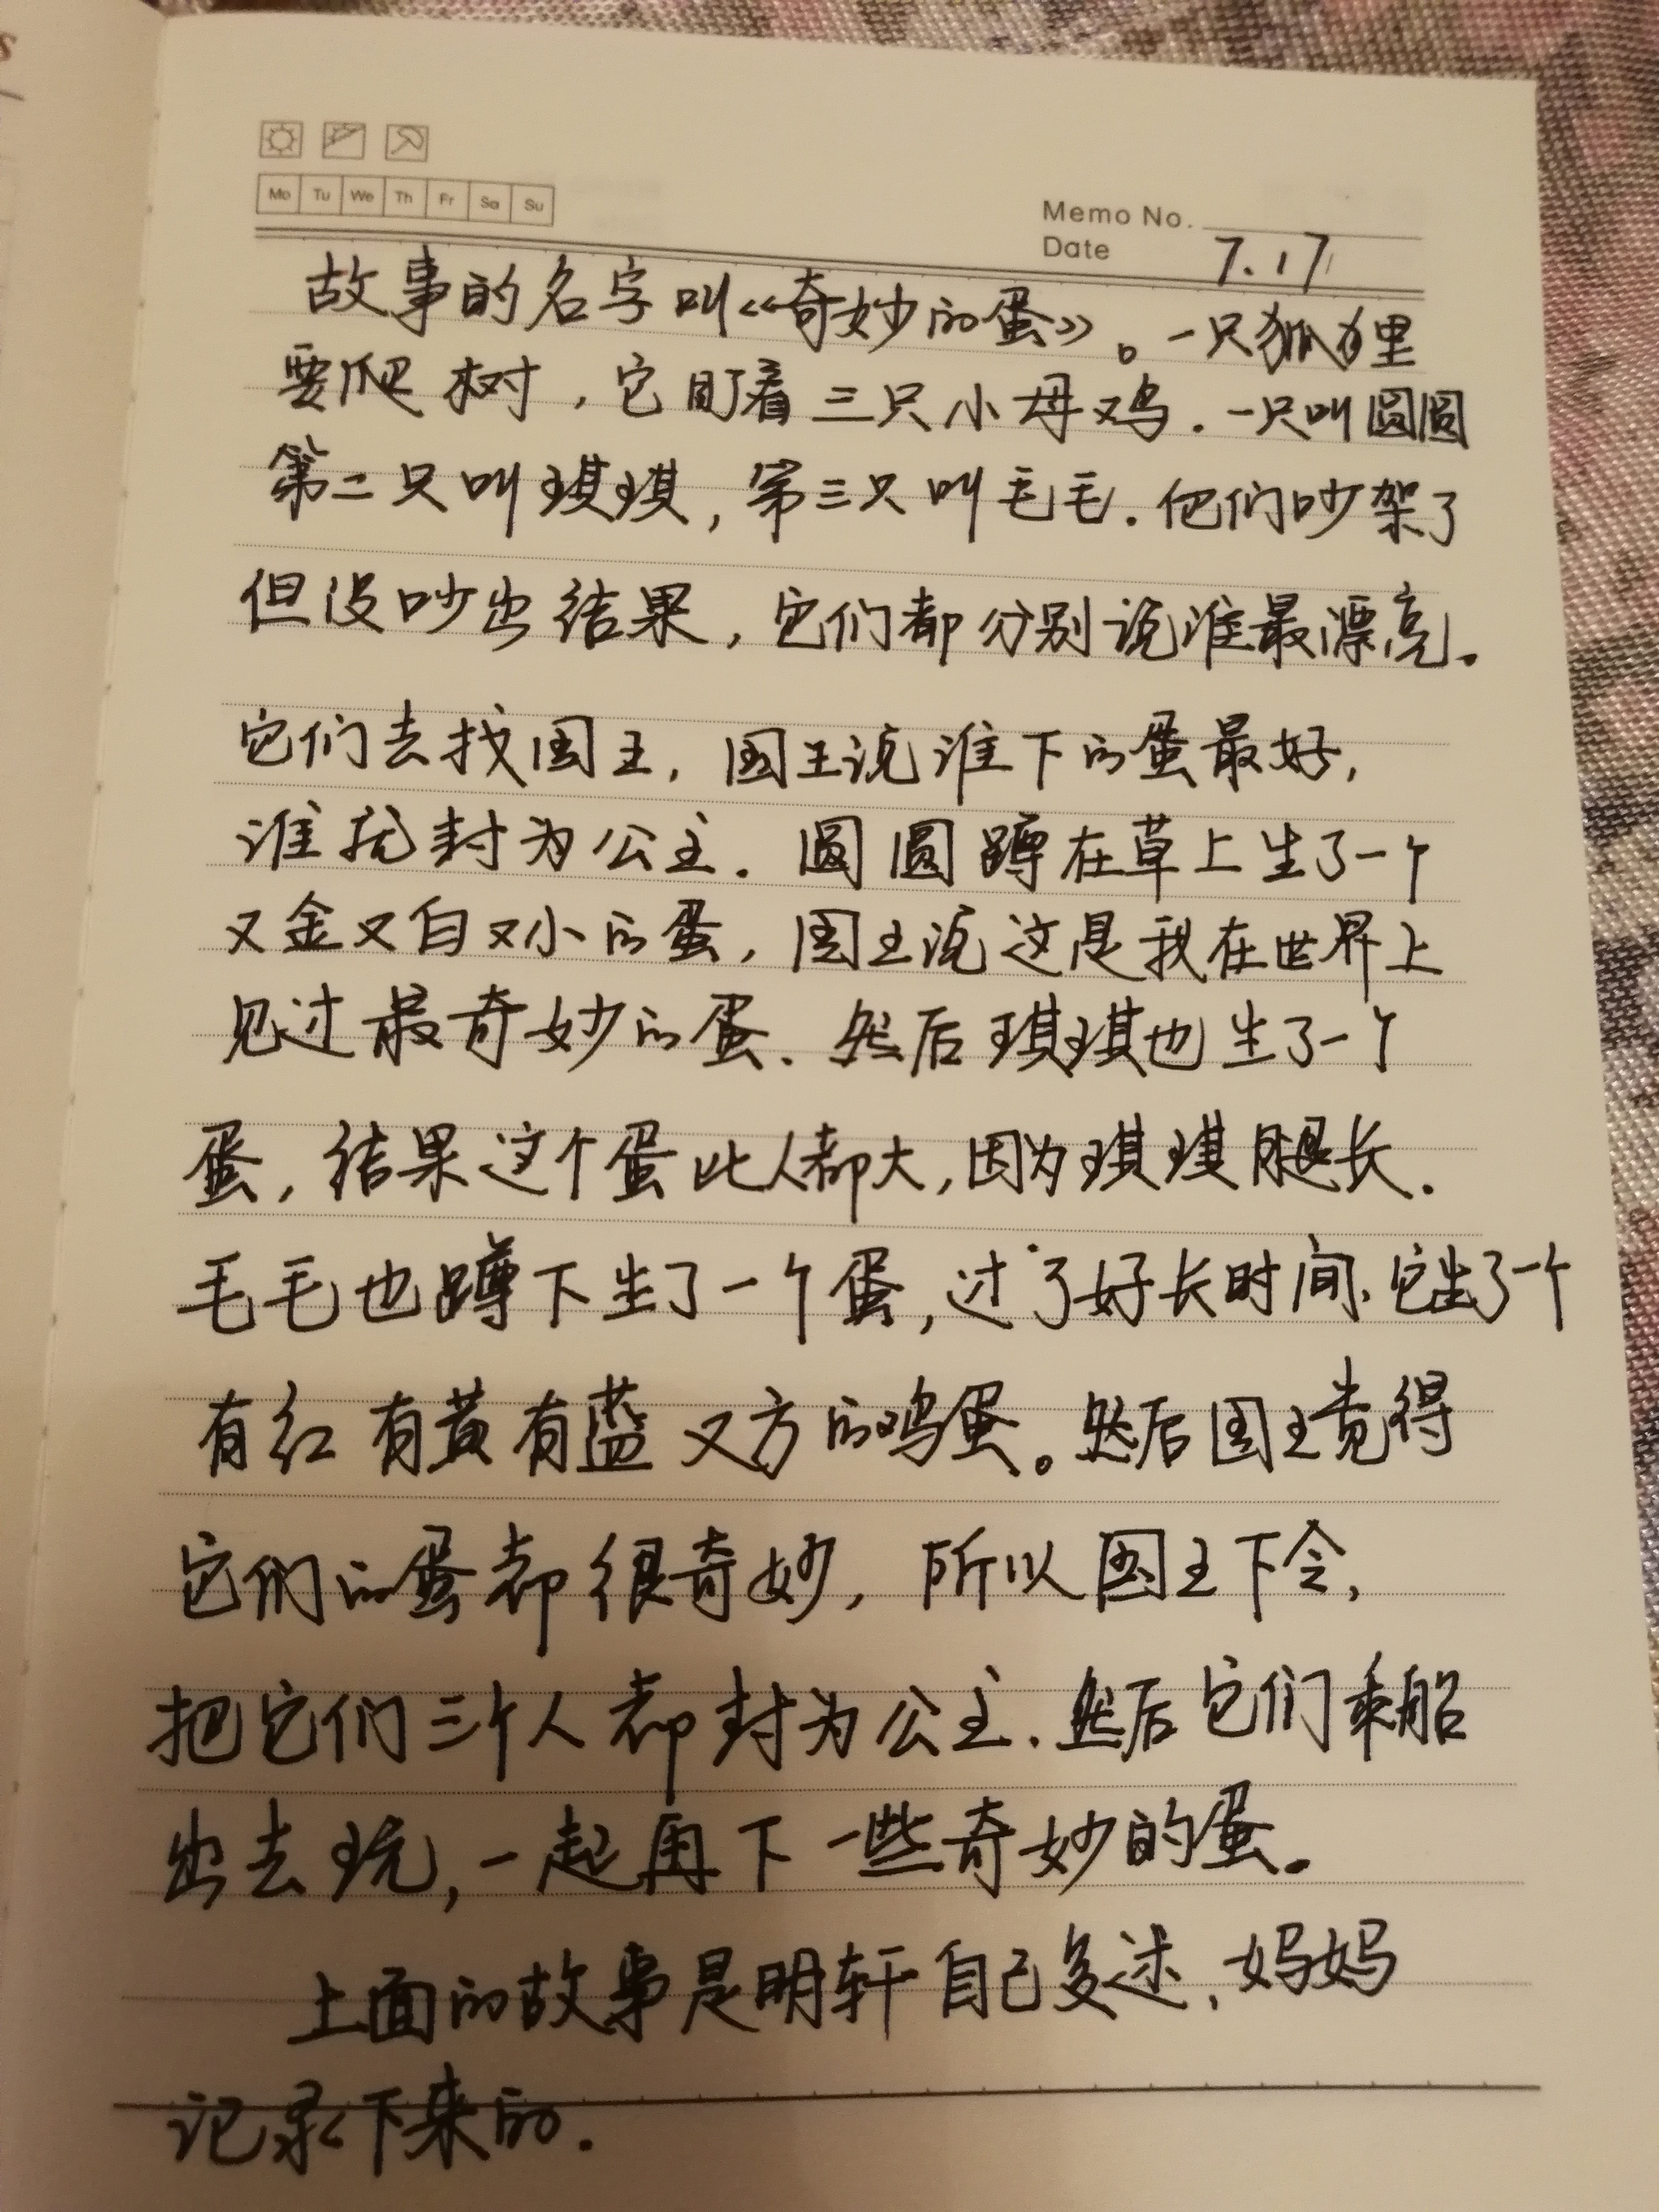 Mo Tu We Th Fr Sa Su
Memo No.
Date 7.17
故事的名字叫《奇妙的蛋》。一只狐狸
要爬树，它盯着三只小母鸡.一只叫圆圆
第二只叫琪琪，第三只叫毛毛.他们吵架了
但没吵出结果，它们都分别说谁最漂亮.
它们去找国王，国王说谁下的蛋最好，
谁就封为公主.圆圆蹲在草上生了一个
又金又白又小的蛋，国王说这是我在世界上
见过最奇妙的蛋.然后琪琪也生了一个
蛋，结果这个蛋比人都大，因为琪琪腿长.
毛毛也蹲下生了一个蛋，过了好长时间.它出了一个
有红有黄有蓝又方的鸡蛋。然后国王觉得
它们的蛋都很奇妙，所以国王下令，
把它们三个人都封为公主.然后它们乘船
出去玩，一起再下一些奇妙的蛋。
上面的故事是明轩自己复述，妈妈
记录下来的.